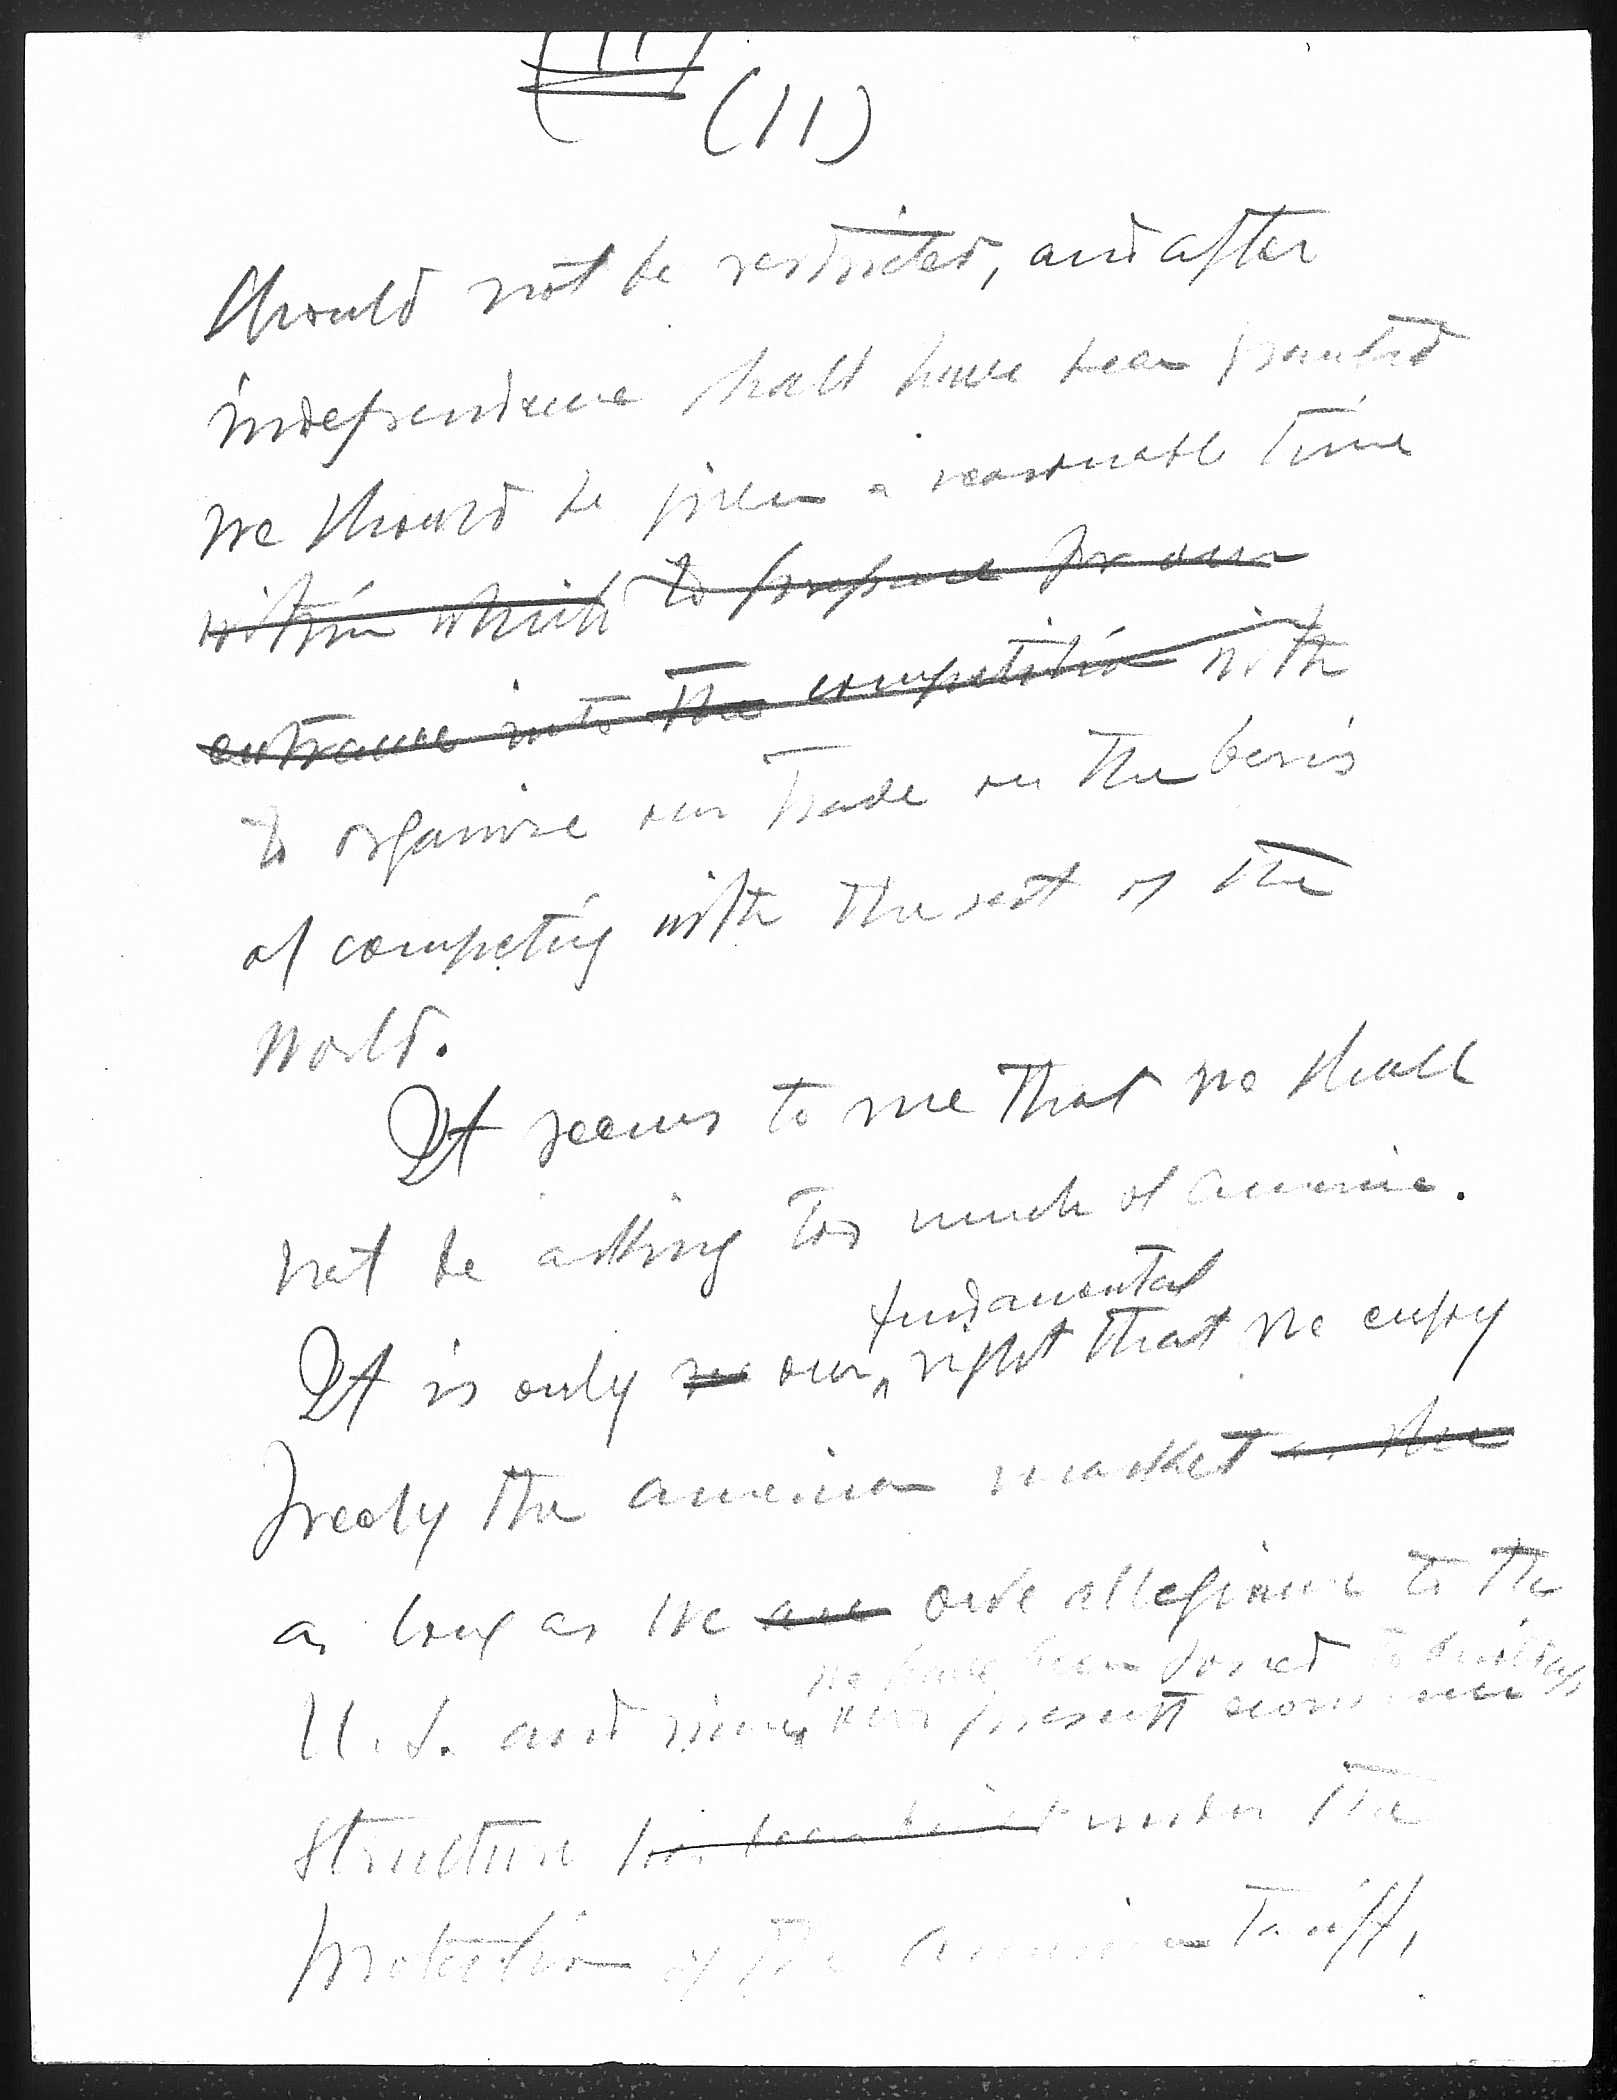 (11)
(11)
should not be restricted, and after
independence shall have been granted
we should be given a reasonable time
within which to prepare for our
entrance into the competition with
to organize our trade on the basis
of competing with the rest of the
world.
It seems to me that we shall
not be asking too much of America.
fundamental
It is only our right that we enjoy
freely the American market
as long as we are owe allegiance to the
we have been forced to build up
U.S. and since our present economic
structure has been built under the
protection of the American tariff,